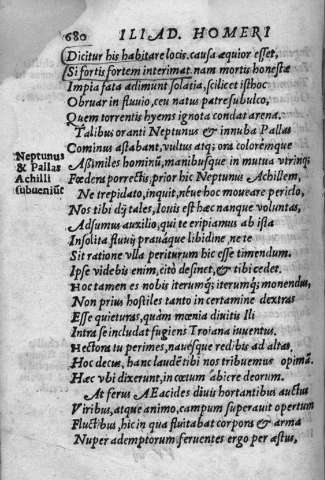 680 ILIAD. HOMERI
Dicitur his habitare locis. causa æquior esset,
Si fortis fortem interimat, nam mortis honestæ
Impia fata adimunt solatia, scilicet isthoc
Obruar in fluuio, ceu natus patre subulco,
Quem torrentis hyems ignota condat arena.
Talibus oranti Neptunus & innuba Pallas
Cominus astabant, vultus atq; ora coloremque
Assimiles hominũ, manibusque in mutua vtrinq;
Fœdera porrectis, prior hic Neptunus Achillem,
Neptunus
& Pallas
Achilli
subueniũt
Ne trepidato, inquit, néue hoc moueare periclo,
Nos tibi dij tales, Iouis est hæc nanque voluntas,
Adsumus auxilio, qui te eripiamus ab ista
Insolita fluuij prauáque libidine, ne te
Sit ratione vlla periturum hic esse timendum.
Ipse videbis enim, citò desinet, & tibi cedet.
Hoc tamen es nobis iterumq; iterumq; monendus,
Non prius hostiles tanto in certamine dextras
Esse quieturas, quàm mœnia diuitis Ili
Intra se includat fugiens Troiana iuuentus.
Hectora tu perimes, nauesque redibis ad altas,
Hoc decus, hanc laudẽ tibi nos tribuemus opimã.
Hæc vbi dixerunt, in cœtum abiere deorum.
At ferus AEacides diuis hortantibus auctus
Viribus, atque animo, campum superauit opertum
Fluctibus, hic in qua fluitabat corpora & arma
Nuper ademptorum, feruentes ergo per æstus,